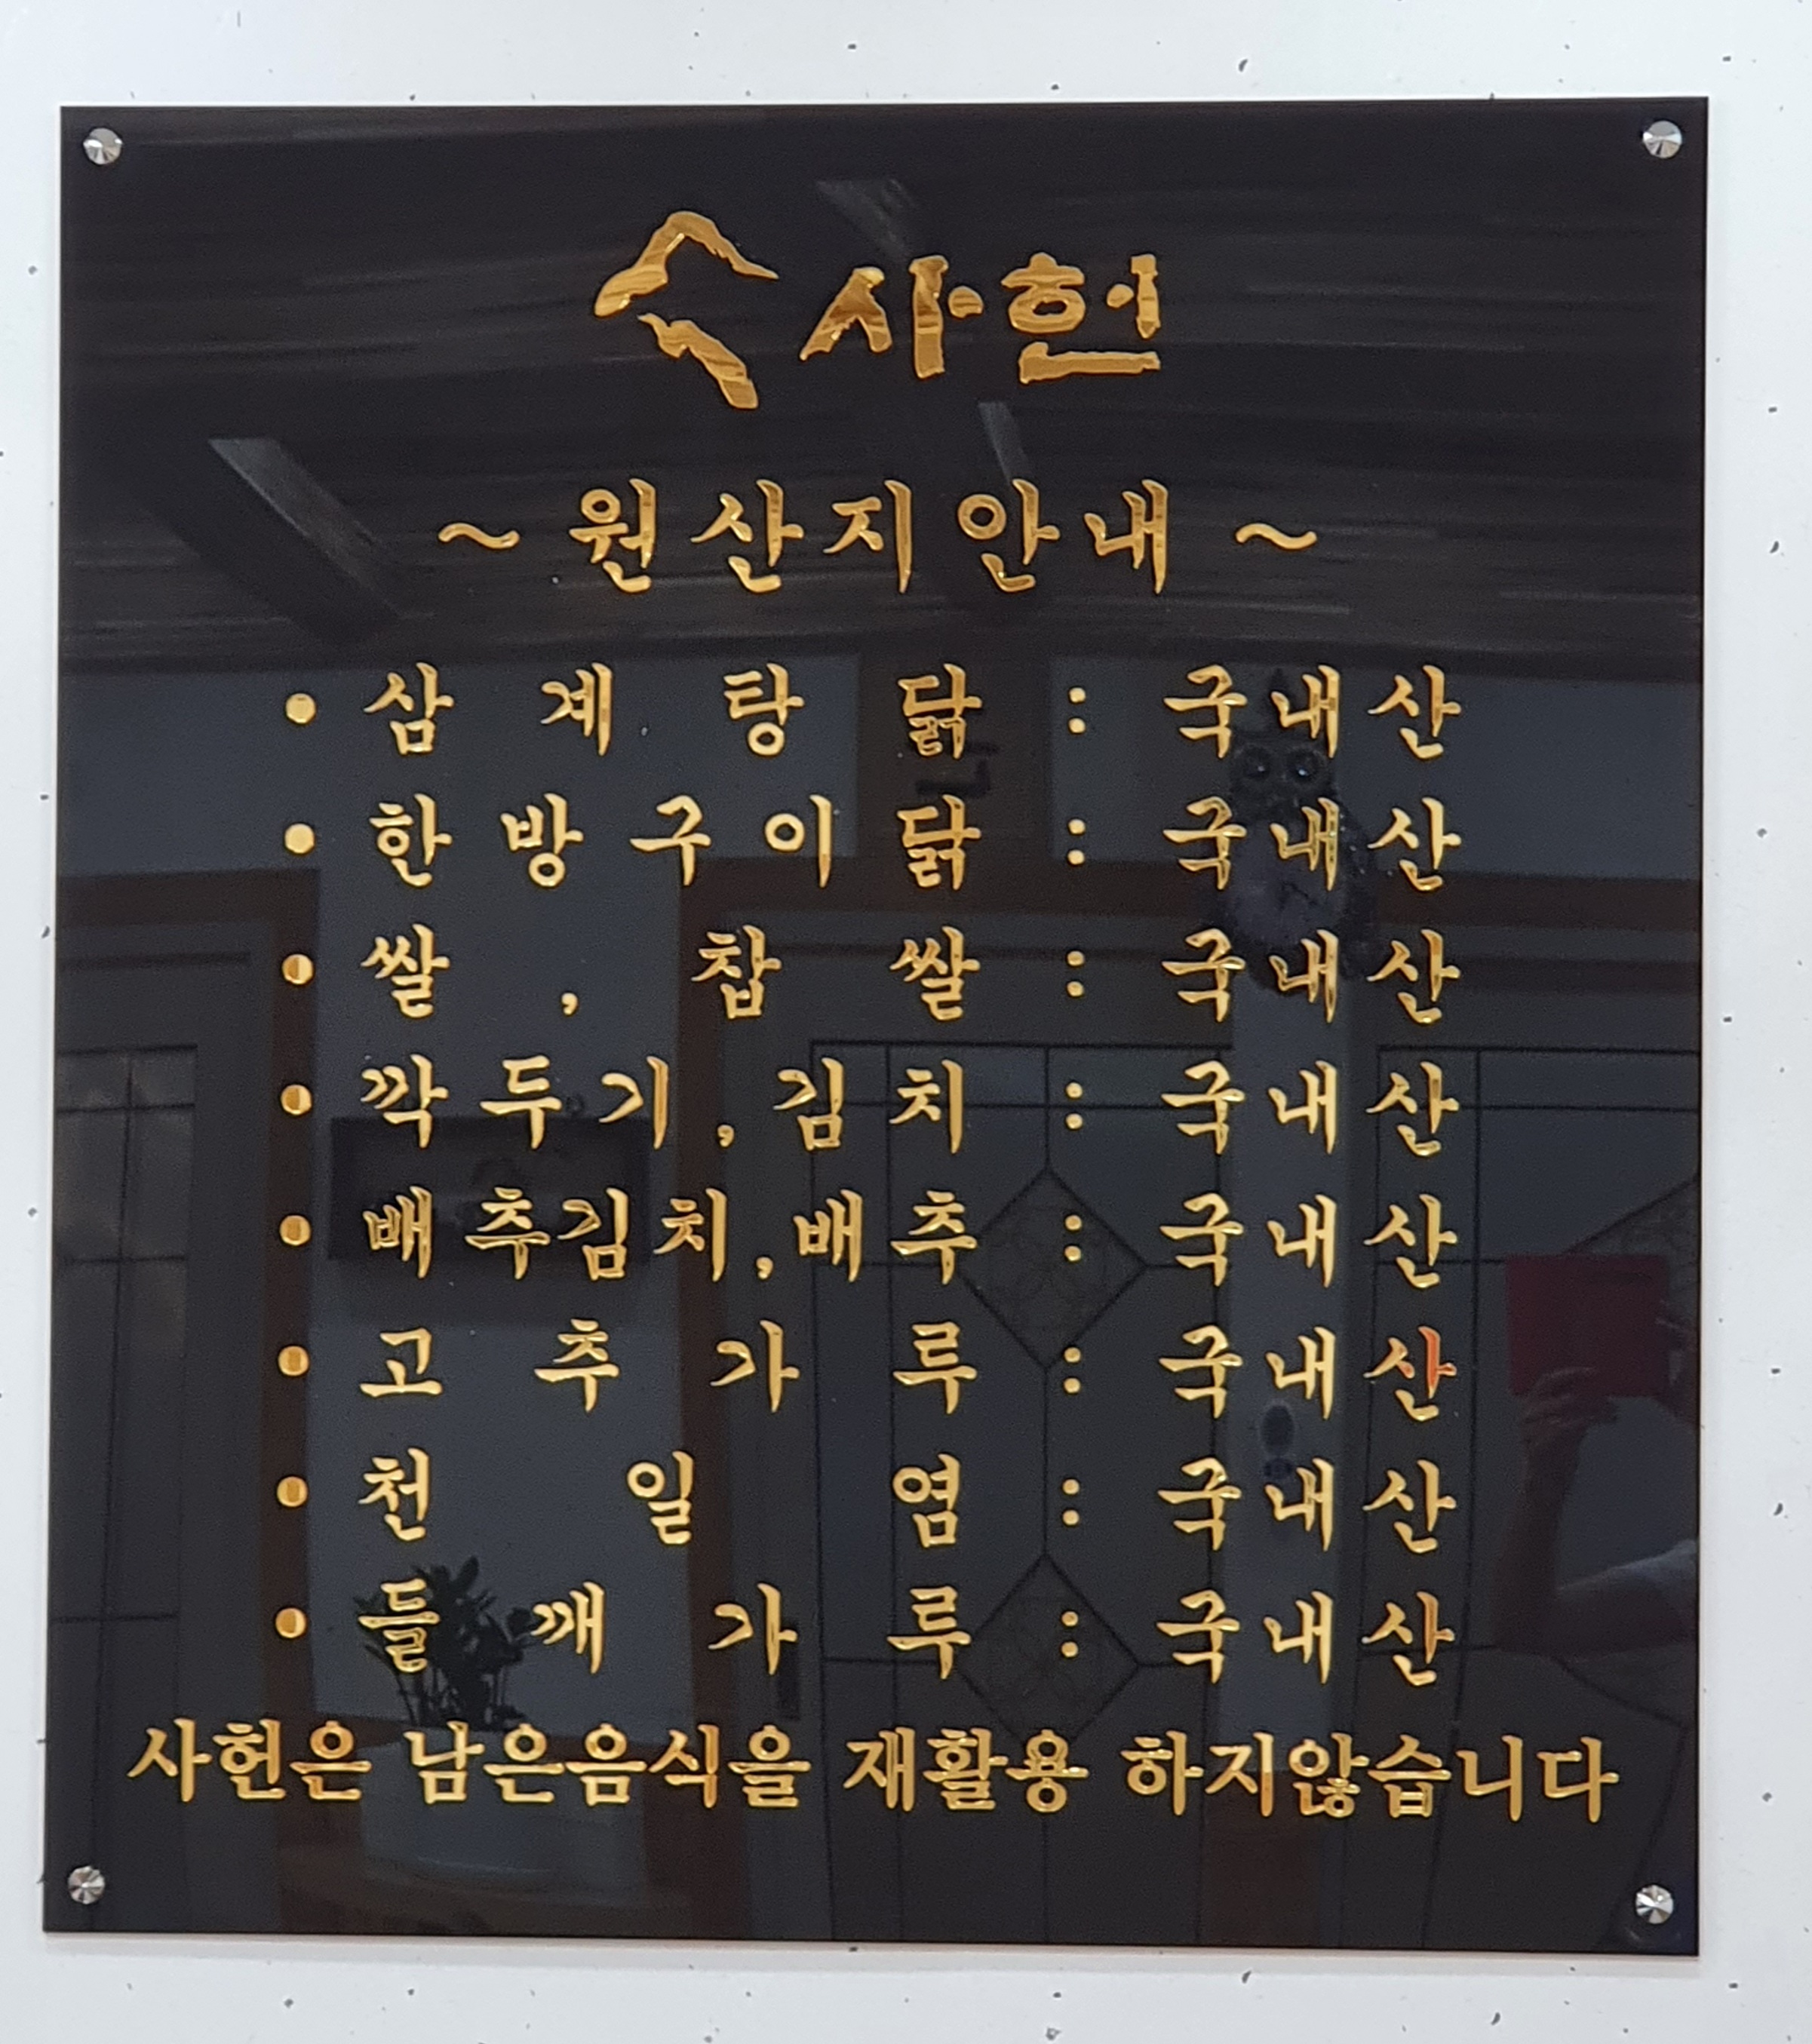 사헌
~ 원산지안내 ~
• 삼계탕닭 : 국내산
• 한방구이닭 : 국내산
• 쌀, 찹쌀 : 국내산
• 깍두기, 김치 : 국내산
• 배추김치, 배추 : 국내산
• 고추가루 : 국내산
• 천일염 : 국내산
• 들깨가루 : 국내산
사헌은 남은음식을 재활용 하지않습니다